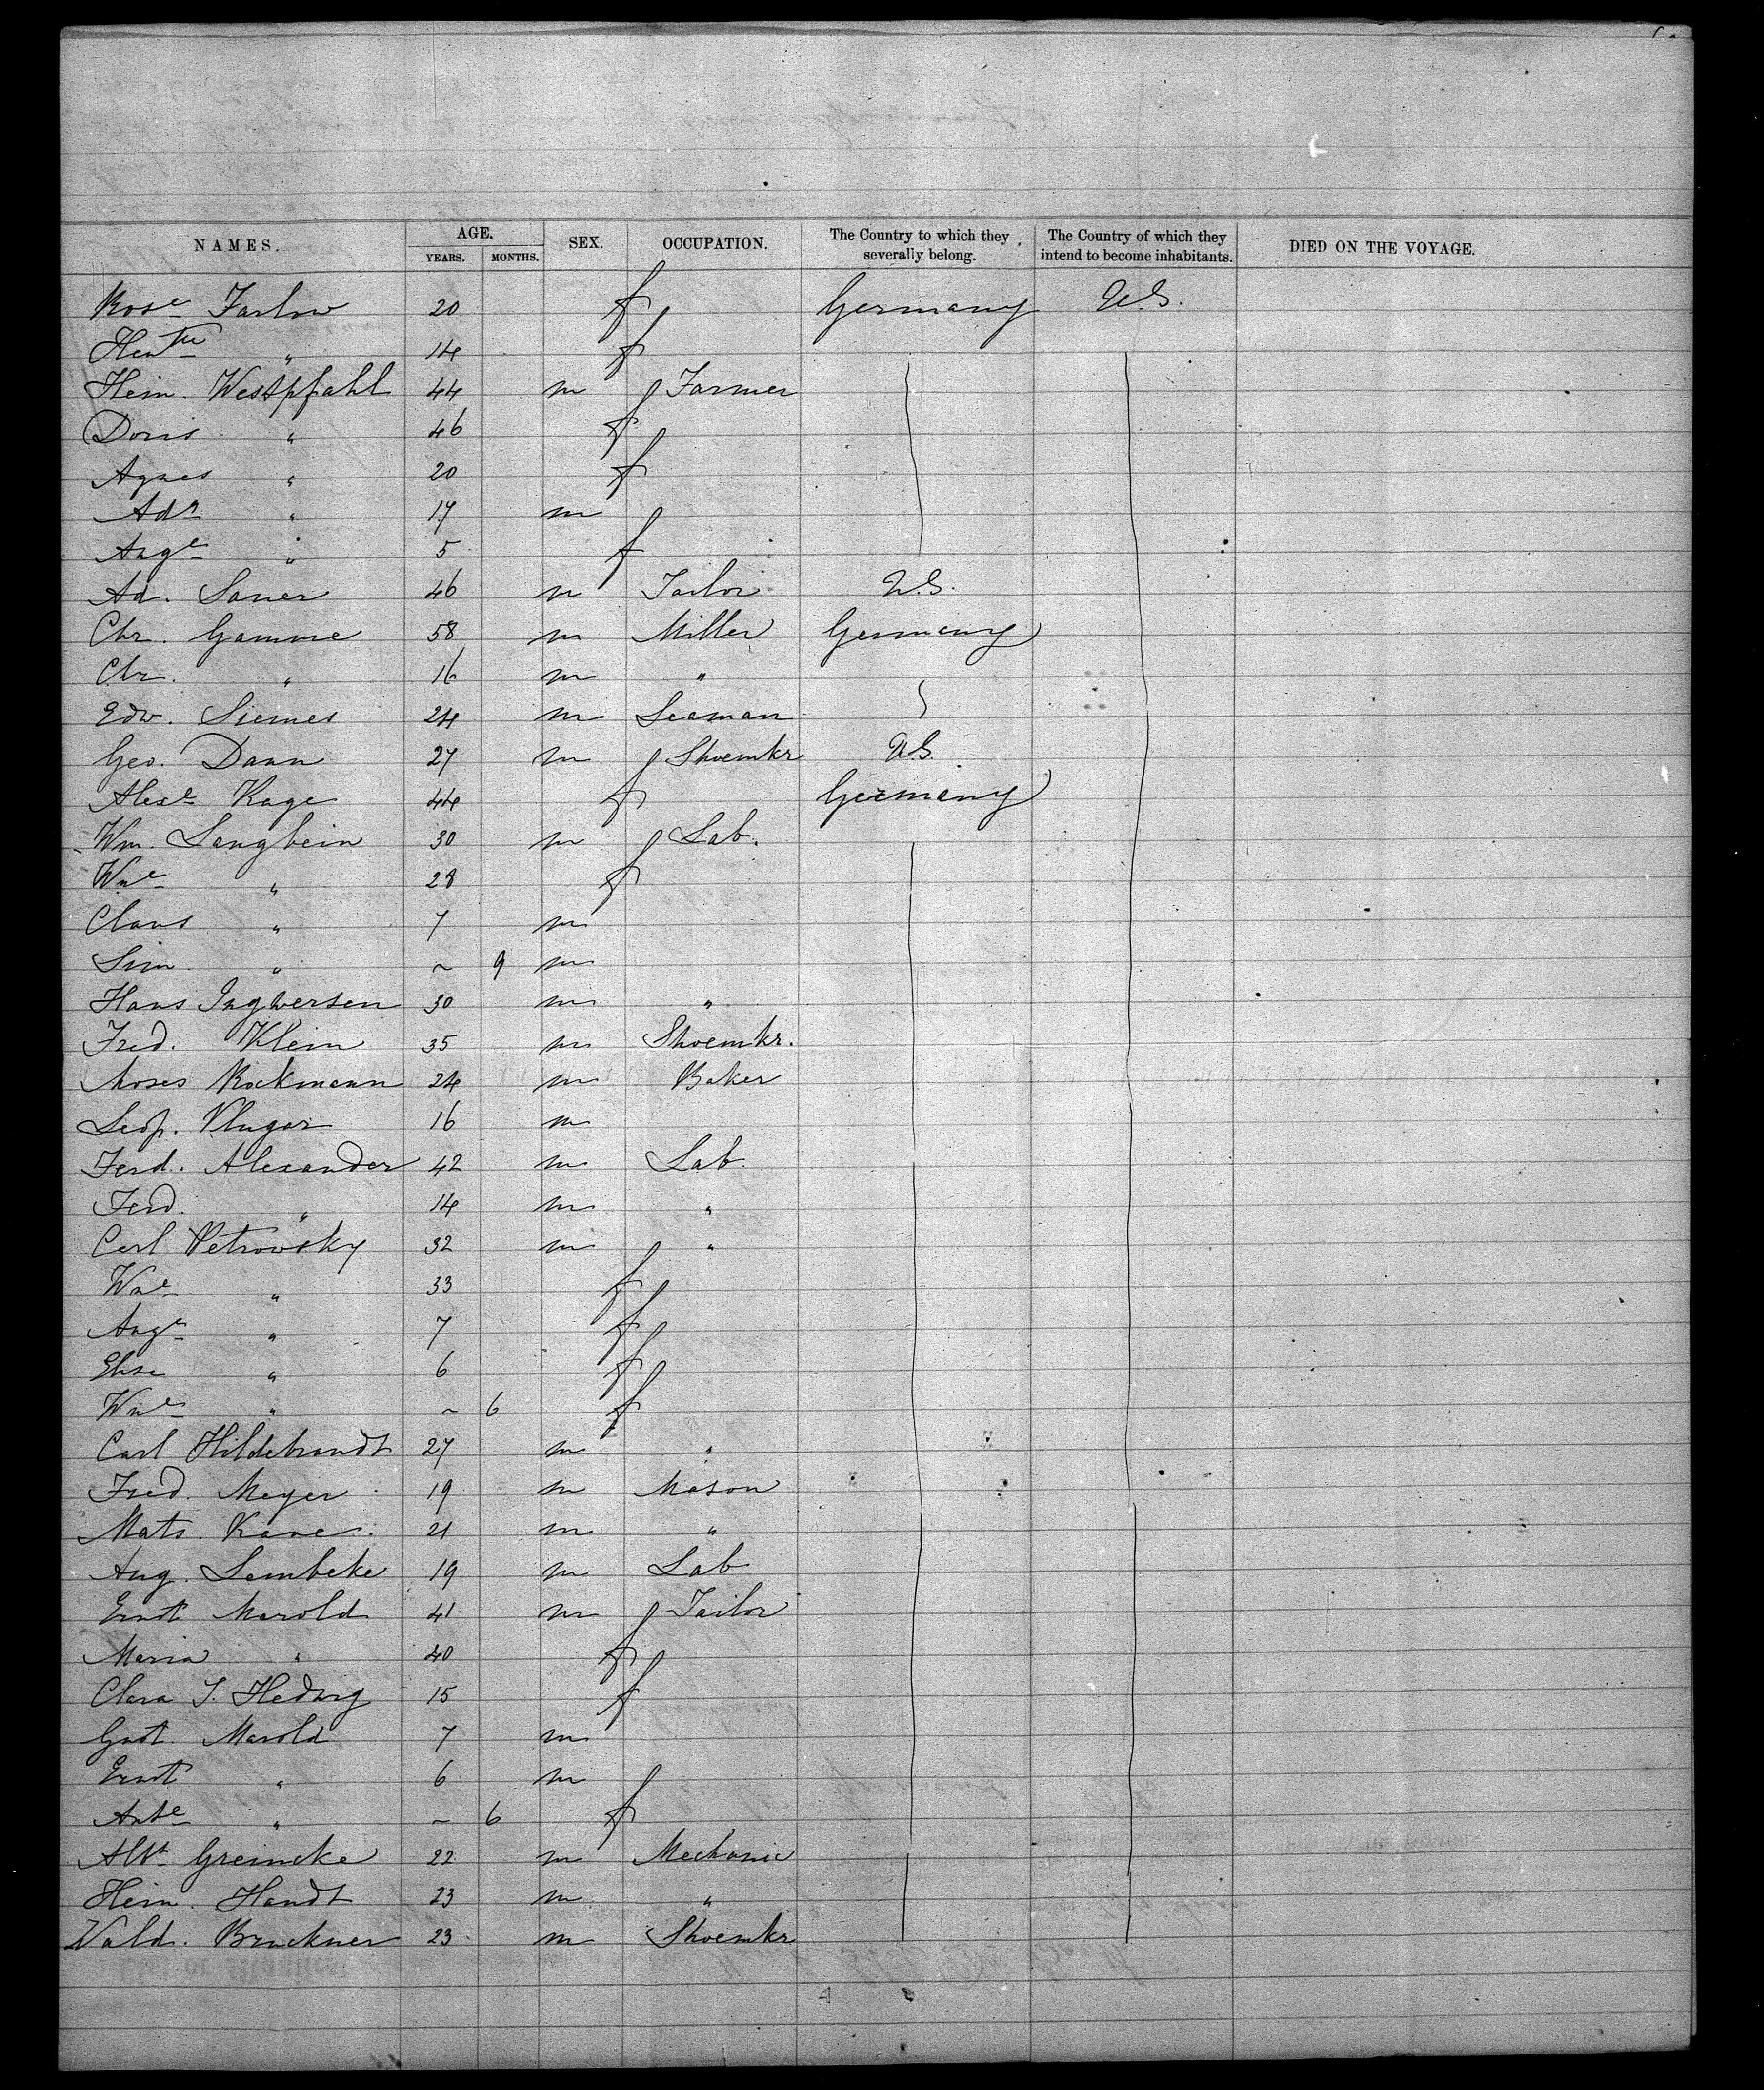 NAMES. AGE. YEARS. MONTHS. SEX. OCCUPATION. The Country to which they severally belong. The Country of which they intend to become inhabitants. DIED ON THE VOYAGE.
Rose Farlow 20 f Germany U.S.
Hentte " 14 f
Hein. Westpfahl 44 m Farmer
Doris " 46 f
Agnes " 20 f
Ado " 17 m
Auge " 5 f
Ad. Sauer 46 m Tailor U.S.
Chr. Gamme 58 m Miller Germany
Chr. " 16 m "
Edw. Siemes 24 m Seaman
Geo. Dann 27 m Shoemkr U.S.
Alexe Kage 44 f Germany
Wm. Langbein 30 m Lab.
Wme " 28 f
Claus " 7 m
Sim " ~ 9 m
Hans Ingwersen 30 m "
Fred. Klein 35 m Shoemkr.
Moses Rockmann 24 m Baker
Leop. Klugar 16 m
Ferd. Alexander 42 m Lab.
Ferd. " 14 m "
Carl Petrowsky 32 m "
Wme " 33 f
Auge " 7 f
Elise " 6 f
Wme " ~ 6 f
Carl Hildebrandt 27 m "
Fred. Meyer 19 m Mason
Mats. Kane 21 m "
Aug. Lembcke 19 m Lab
Ernst Marold 41 m Tailor
Maria " 40 f
Clara S. Hedwig 15 f
Gust. Marold 7 m
Ernst " 6 m
Ante " ~ 6 f
Albt Greincke 22 m Mechanic
Hein. Handt 23 m "
Wald. Bruckner 23 m Shoemkr